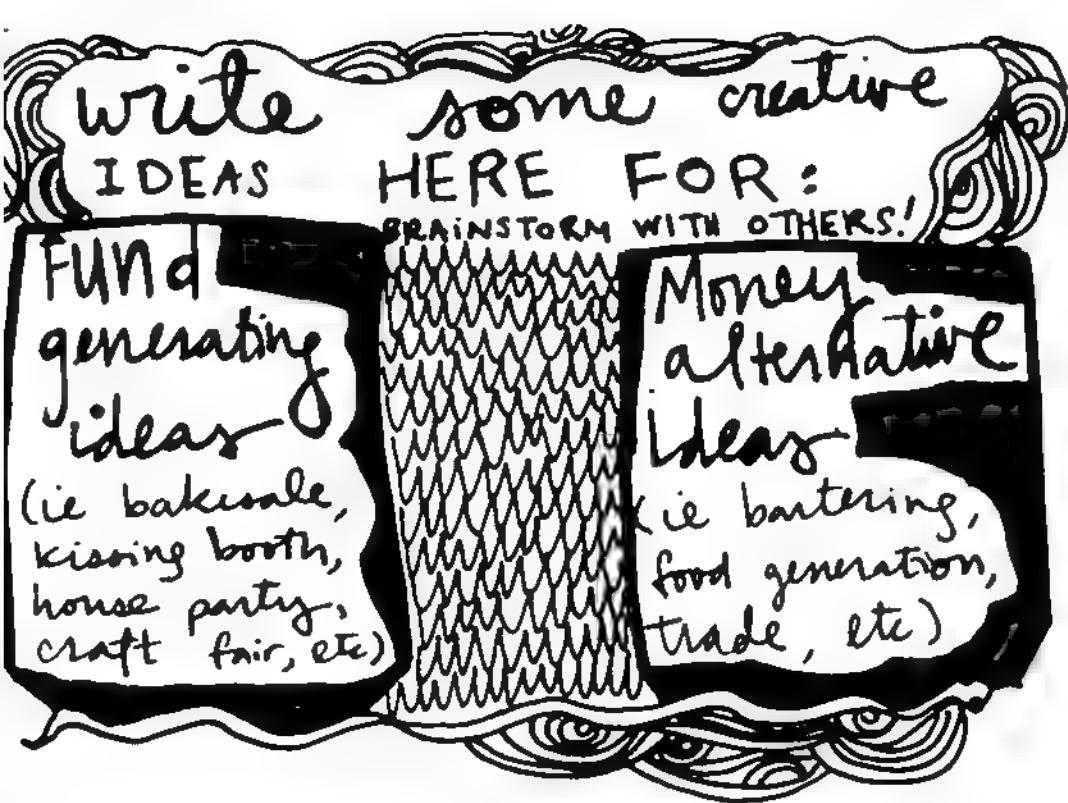 write some creative
IDEAS HERE FOR:
BRAINSTORM WITH OTHERS!
Fund
generating
ideas
(ie bakesale,
kissing booth,
house party,
craft fair, etc)
Money
alternative
ideas
(ie bartering,
food generation,
trade, etc)